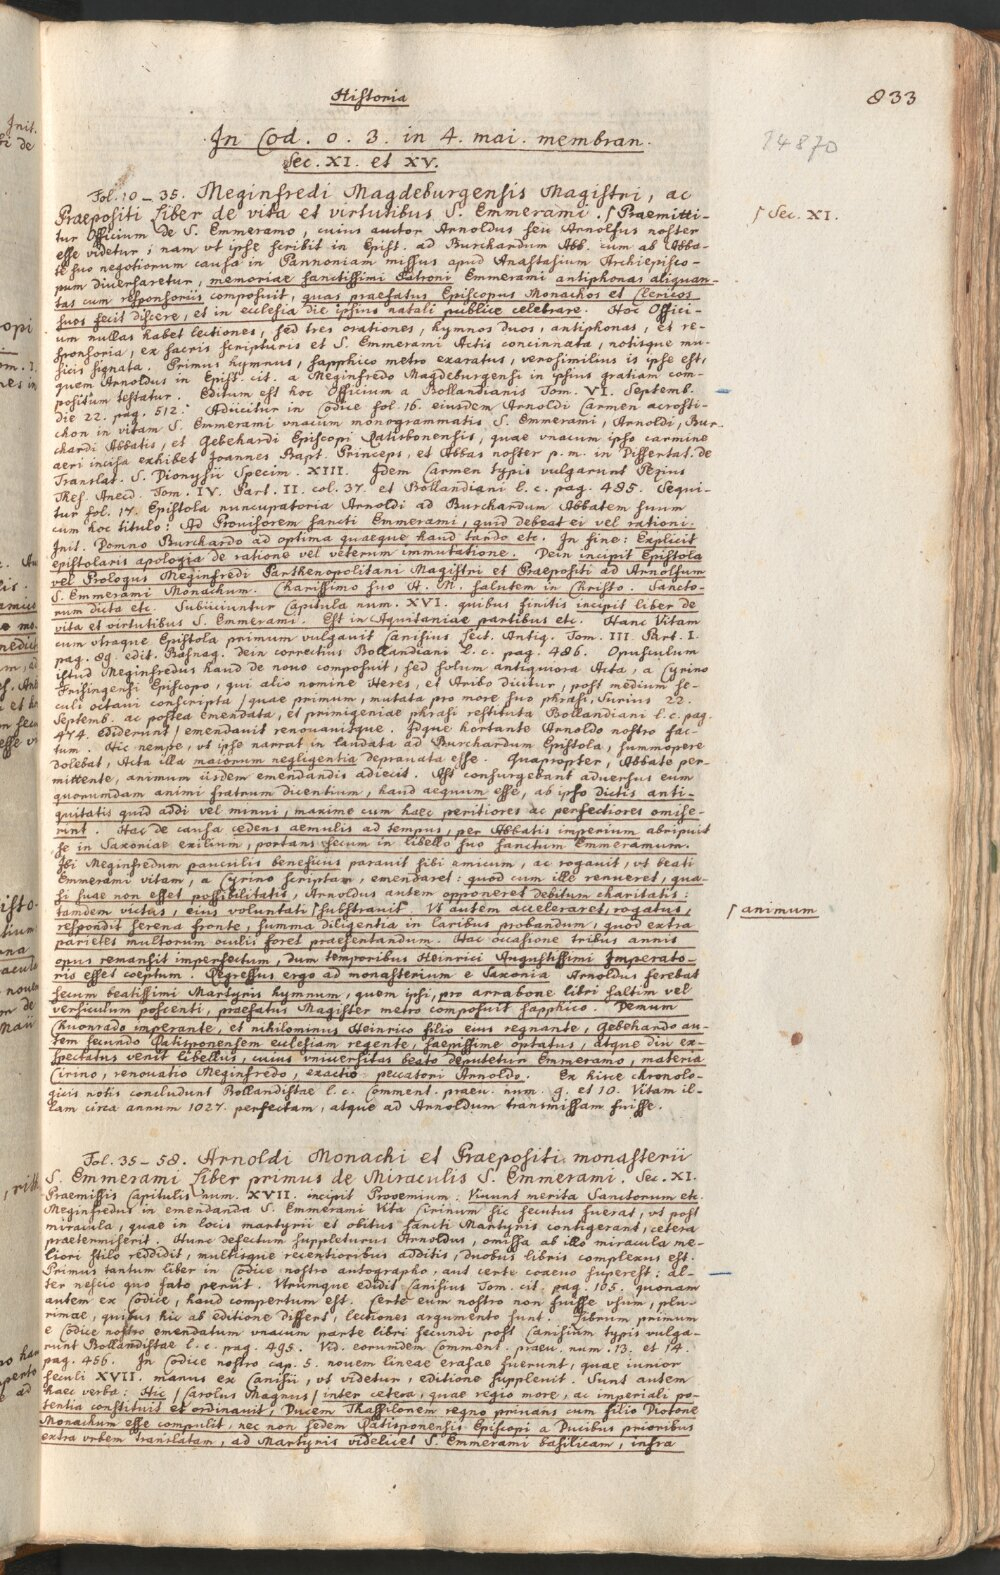 Historia
833
In Cod. o. 3. in 4. mai. membran.
14870
Sec. XI. et XV.
Fol. 10 – 35. Meginfredi Magdeburgensis Magistri, ac
Praepositi Liber de vita et virtutibus S. Emmerami. ⌠ Praemitti-
⌠ Sec. XI.
tur Officium de S. Emmeramo, cuius auctor Arnoldus seu Arnolfus noster
esse videtur; nam vt ipse scribit in Epist. ad Burchardum Abb. cum ab Abba-
te suo negotiorum causa in Pannoniam missus apud Anastasium Archiepisco-
pum diuersaretur, memoriae sanctissimi Patroni Emmerami antiphonas aliquan-
tas cum responsoriis composuit, quas praefatus Episcopus Monachos et Clericos
suos fecit discere, et in ecclesia die ipsius natali publice celebrare. Hoc Offici-
um nullas habet lectiones, sed tres orationes, hymnos duos, antiphonas, et re-
sponsoria, ex sacris scripturis et S. Emmerami Actis concinnata, notisque mu-
sicis signata. Primus hymnus, sapphico metro exaratus, verosimilius is ipse est,
quem Arnoldus in Epist. cit. a Meginfredo Magdeburgensi in ipsius gratiam com-
positum testatur. Editum est hoc Officium a Bollandianis Tom. VI. Septemb.
die 22. pag. 512. Adiicitur in Codice fol. 16. eiusdem Arnoldi Carmen acrosti-
chon in vitam S. Emmerami vnacum monogrammatis S. Emmerami, Arnoldi, Bur-
chardi Abbatis, et Gebehardi Episcopi Ratisbonensis, quae vnacum ipso carmine
aeri incisa exhibet Joannes Bapt. Princeps, et Abbas noster p. m. in Dissertat. de
Translat. S. Dionysii Specim. XIII. Idem Carmen typis vulgarunt Pezius
Thes. Anecd. Tom. IV. Part. II. col. 37. et Bollandiani l. c. pag. 485. Sequi-
tur fol. 17. Epistola nuncupatoria Arnoldi ad Burchardum Abbatem suum
cum hoc titulo: Ad Prouisorem sancti Emmerami, quid debeat ei vel rationi.
Init. Domno Burchardo ad optima quaeque haud tardo etc. In fine: Explicit
epistolaris apologia de ratione vel veterum immutatione. Dein incipit Epistola
vel Prologus Meginfredi Parthenopolitani Magistri et Praepositi ad Arnolfum
S. Emmerami Monachum. Charissimo suo A. M. salutem in Christo. Sancto-
rum dicta etc. Subiiciuntur Capitula num. XVI. quibus finitis incipit liber de
vita et virtutibus S. Emmerami. Est in Aquitaniae partibus etc. Hanc Vitam
cum vtraque Epistola primum vulgauit Canisius Lect. Antiq. Tom. III. Part. I.
pag. 89. edit. Basnag. dein correctius Bollandiani l. c. pag. 486. Opusculum
istud Meginfredus haud de nouo composuit, sed solum antiquiora Acta, a Cyrino
Frisingensi Episcopo, qui alio nomine Heres, et Aribo dicitur, post medium se-
culi octaui conscripta, quae primum, mutata pro more suo phrasi, Surius 22.
Septemb. ac postea emendata, et primigeniae phrasi restituta Bollandiani l. c. pag.
474. ediderunt, emendauit renouauitque. Idque hortante Arnoldo nostro fac-
tum. Hic nempe, vt ipse narrat in laudata ad Burchardum Epistola, summopere
dolebat, Acta illa maiorum negligentia deprauata esse. Quapropter, Abbate per-
mittente, animum iisdem emendandis adiecit. Ast consurgebant aduersus eum
quorumdam animi fratrum dicentium, haud aequum esse, ab ipso dictis anti-
quitatis quid addi vel minui, maxime cum haec peritiores ac perfectiores omise-
rint. Hac de causa cedens aemulis ad tempus, per Abbatis imperium abripuit
se in Saxoniae exilium, portans secum in libello suo sanctum Emmeramum.
Ibi Meginfredum pauculis beneficus parauit sibi amicum, ac rogauit, vt beati
Emmerami vitam, a Cyrino scriptam, emendaret: quod cum ille renueret, qua-
si suae non esset possibilitatis, Arnoldus autem opponeret debitum charitatis:
tamdem victus, eius voluntati ⌠ substrauit. Vt autem acceleraret, rogatus,
⌠ animum
respondit serena fronte, summa diligentia in laribus probandum, quod extra
parietes multorum oculis foret praesentandum. Hac occasione tribus annis
opus remansit imperfectum, dum temporibus Heinrici Augustissimi Imperato-
ris esset coeptum. Regressus ergo ad monasterium e Saxonia Arnoldus ferebat
secum beatissimi Martyris hymnum, quem ipsi, pro arrabone libri saltim vel
versiculum poscenti, praefatus Magister metro composuit sapphico. Demum
Chuonrado imperante, et nihilominus Heinrico filio eius regnante, Gebehardo au-
tem secundo Ratisponensem ecclesiam regente, saepissime optatus, atque diu ex-
spectatus venit libellus, cuius vniuersitas beato deputetur Emmeramo, materia
Cirino, renouatio Meginfredo, exactio peccatori Arnoldo. Ex hisce chronolo-
gicis notis concludunt Bollandistae l. c. Comment. praeu. num. 9. et 10. Vitam il-
lam circa annum 1027. perfectam, atque ad Arnoldum transmissam fuisse.
Fol. 35 – 58. Arnoldi Monachi et Praepositi monasterii
S. Emmerami Liber primus de Miraculis S. Emmerami. Sec. XI.
Praemissis Capitulis num. XVII. incipit Prooemium: Viuunt merita Sanctorum etc.
Meginfredus in emendanda S. Emmerami Vita Cirinum sic secutus fuerat, vt post
miracula, quae in locis martyrii et obitus sancti Martyris contigerant, cetera
praetermiserit. Hunc defectum suppleturus Arnoldus, omissa ab illo miracula me-
liori stilo reddidit, multisque recentioribus additis, duobus libris complexus est.
Primus tantum liber in Codice nostro autographo, aut certe coaeuo superest: al-
ter nescio quo fato periit. Vtrumque edidit Canisius Tom. cit. pag. 105. quonam
autem ex Codice, haud compertum est. Certe eum nostro non fuisse vsum, plu-
rimae, quibus hic ab editione differt, lectiones argumento sunt. Librum primum
e Codice nostro emendatum vnacum parte libri secundi post Canisium typis vulga-
runt Bollandistae l. c. pag. 495. Vid. eorumdem Comment. praeu. num. 13. et 14.
pag. 456. In Codice nostro cap. 5. nouem lineae erasae fuerunt, quae iunior
seculi XVII. manus ex Canisii, vt videtur, editione suppleuit. Sunt autem
haec verba: Hic (Carolus Magnus) inter cetera, quae regio more, ac imperiali po-
tentia constituit et ordinauit, Ducem Thassilonem regno priuans cum filio Diotone
Monachum esse compulit, nec non sedem Ratisponensis Episcopi a Ducibus prioribus
extra vrbem translatam, ad Martyris videlicet S. Emmerami basilicam, infra